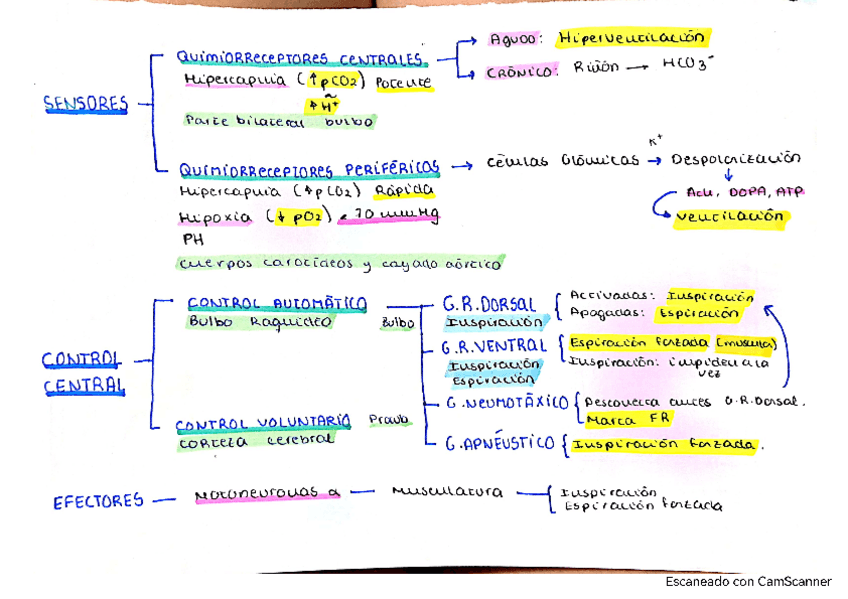 SENSORES
QUIMIORRECEPTORES CENTRALES
Hipercapnia (↑pCO2) Potente
↑ H+
Parte bilateral bulbo
AGUDO: Hiperventilación
CRÓNICO: Riñón → HCO3-
QUIMIORRECEPTORES PERIFÉRICOS → Células Glómicas → Despolarización
K+
Hipercapnia (↑pCO2) Rápida
Hipoxia (↓ pO2) < 70 mmHg
PH
Cuerpos carotídeos y cayado aórtico
Ach, DOPA, ATP
Ventilación
CONTROL CENTRAL
CONTROL AUTOMÁTICO
Bulbo Raquídeo
Bulbo
G.R.DORSAL
Inspiración
Activadas: Inspiración
Apagadas: Espiración
G.R.VENTRAL
Inspiración
Espiración
Espiración forzada (muscula)
Inspiración: impiden a la
vez
CONTROL VOLUNTARIO
Corteza cerebral
G.NEUMOTÁXICO
Desconecta antes G.R.Dorsal.
Marca FR
G.APNÉUSTICO
Inspiración forzada.
EFECTORES — Motoneuronas α — Musculatura
Inspiración
Espiración forzada
Escaneado con CamScanner